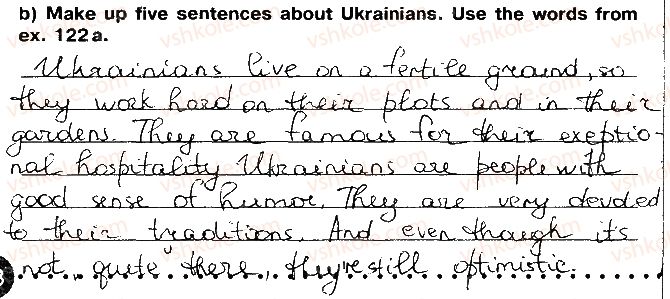 b) Make up five sentences about Ukrainians. Use the words from
ex. 122a.
Ukrainians live on a fertile ground, so
they work hard on their plots and in their
gardens. They are famous for their exeptio-
nal hospitality. Ukrainians are people with
good sense of humor. They are very devoded
to their traditions. And even though its
not quite there, they're still optimistic.